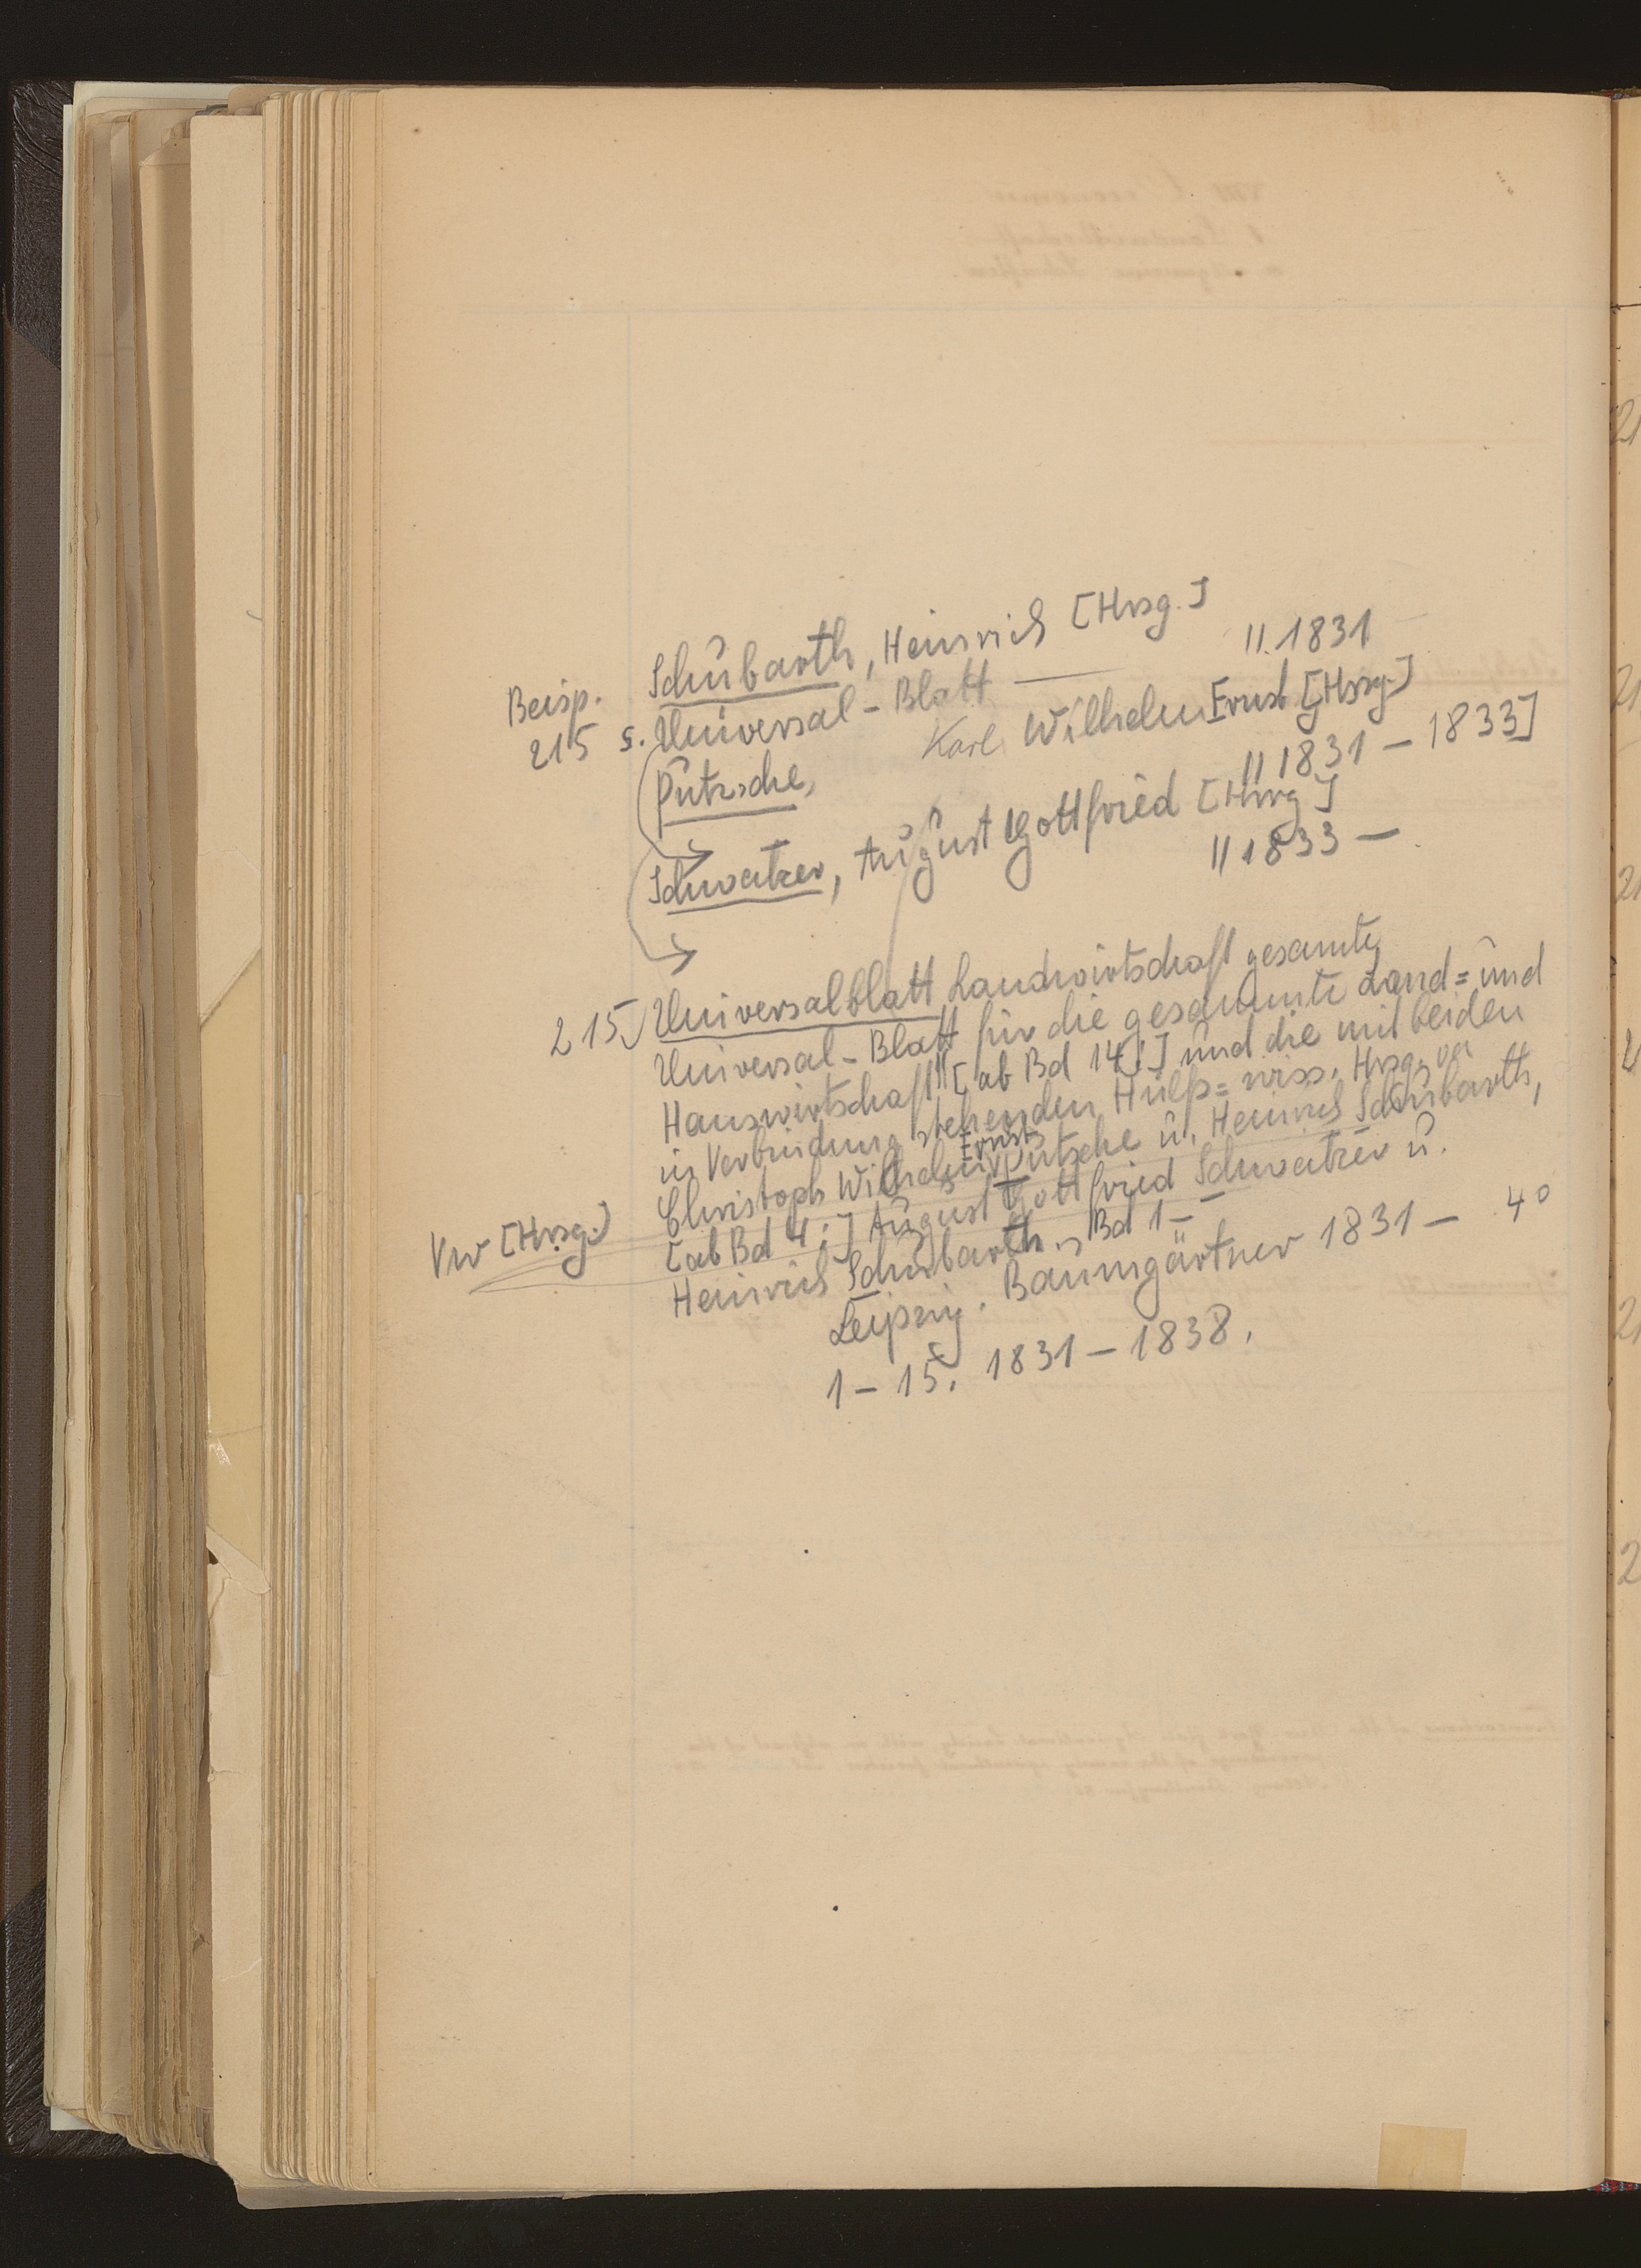 Beisp. Schubarth, Heinrich [Hrsg.]
215 s. Universal-Blatt — II. 1831
Pützsche, Karl Wilhelm Ernst [Hrsg.]
II 1831 – 1833]
Schweitzer, August Gottfried [Hrsg]
II 1833 –
215 Universalblatt Landwirtschaft gesamte
Universal-Blatt für die gesammte Land= und
Hauswirtschaft [ab Bd 14:] und die mit beiden
in Verbindung stehenden Hülfs=wiss. Hrsg. von
Christoph Wilhelm Ernst Pützsche u. Heinrich Schubarth,
[ab Bd 4:] August Gottfried Schweitzer u.
Vw [Hrsg.] Heinrich Schubarth. Bd 1–
Leipzig. Baumgärtner 1831 – 4°
1 – 15. 1831 – 1838.